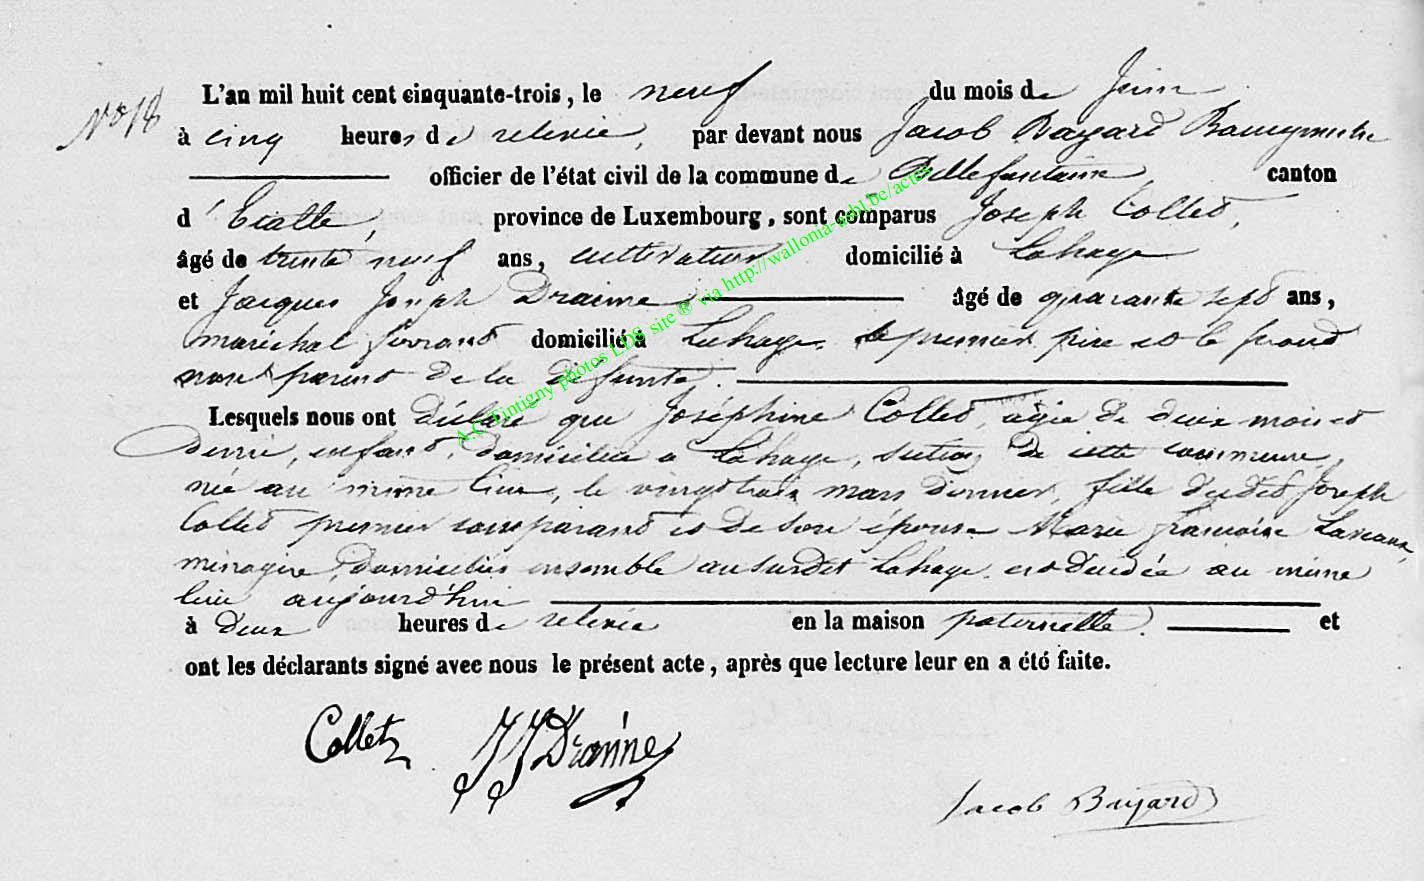 No 18
L'an mil huit cent cinquante-trois, le neuf du mois de Juin
à cinq heures de relevée, par devant nous Jacob Bayard Bourgmestre
officier de l'état civil de la commune de Bellefontaine, canton
d'Etalle, province de Luxembourg, sont comparus Joseph Collet,
âgé de trente neuf ans, cultivateur domicilié à Lahage
et Jacques Joseph Draime âgé de quarante sept ans,
maréchal ferrant domicilié à Lahage. le premier père et le second
non parent de la défunte.
Lesquels nous ont déclaré que Joséphine Collet, agée de deux mois et
demie, enfant, domiciliée a Lahage, section de cette commune,
née au même lieu, le vingt trois mars dernier, fille dudit Joseph
Collet premier comparant et de son épouse Marie françoise Laveaux,
ménagère, domiciliés ensemble au susdit Lahage. est décédée au même
lieu aujourd'hui
à deux heures de relevée en la maison paternelle. et
ont les déclarants signé avec nous le présent acte, après que lecture leur en a été faite.
Collet JJ Draime
Jacob Bayard
A.C. Tintigny photos LDS site ® via http://wallonia-asbl.be/actes